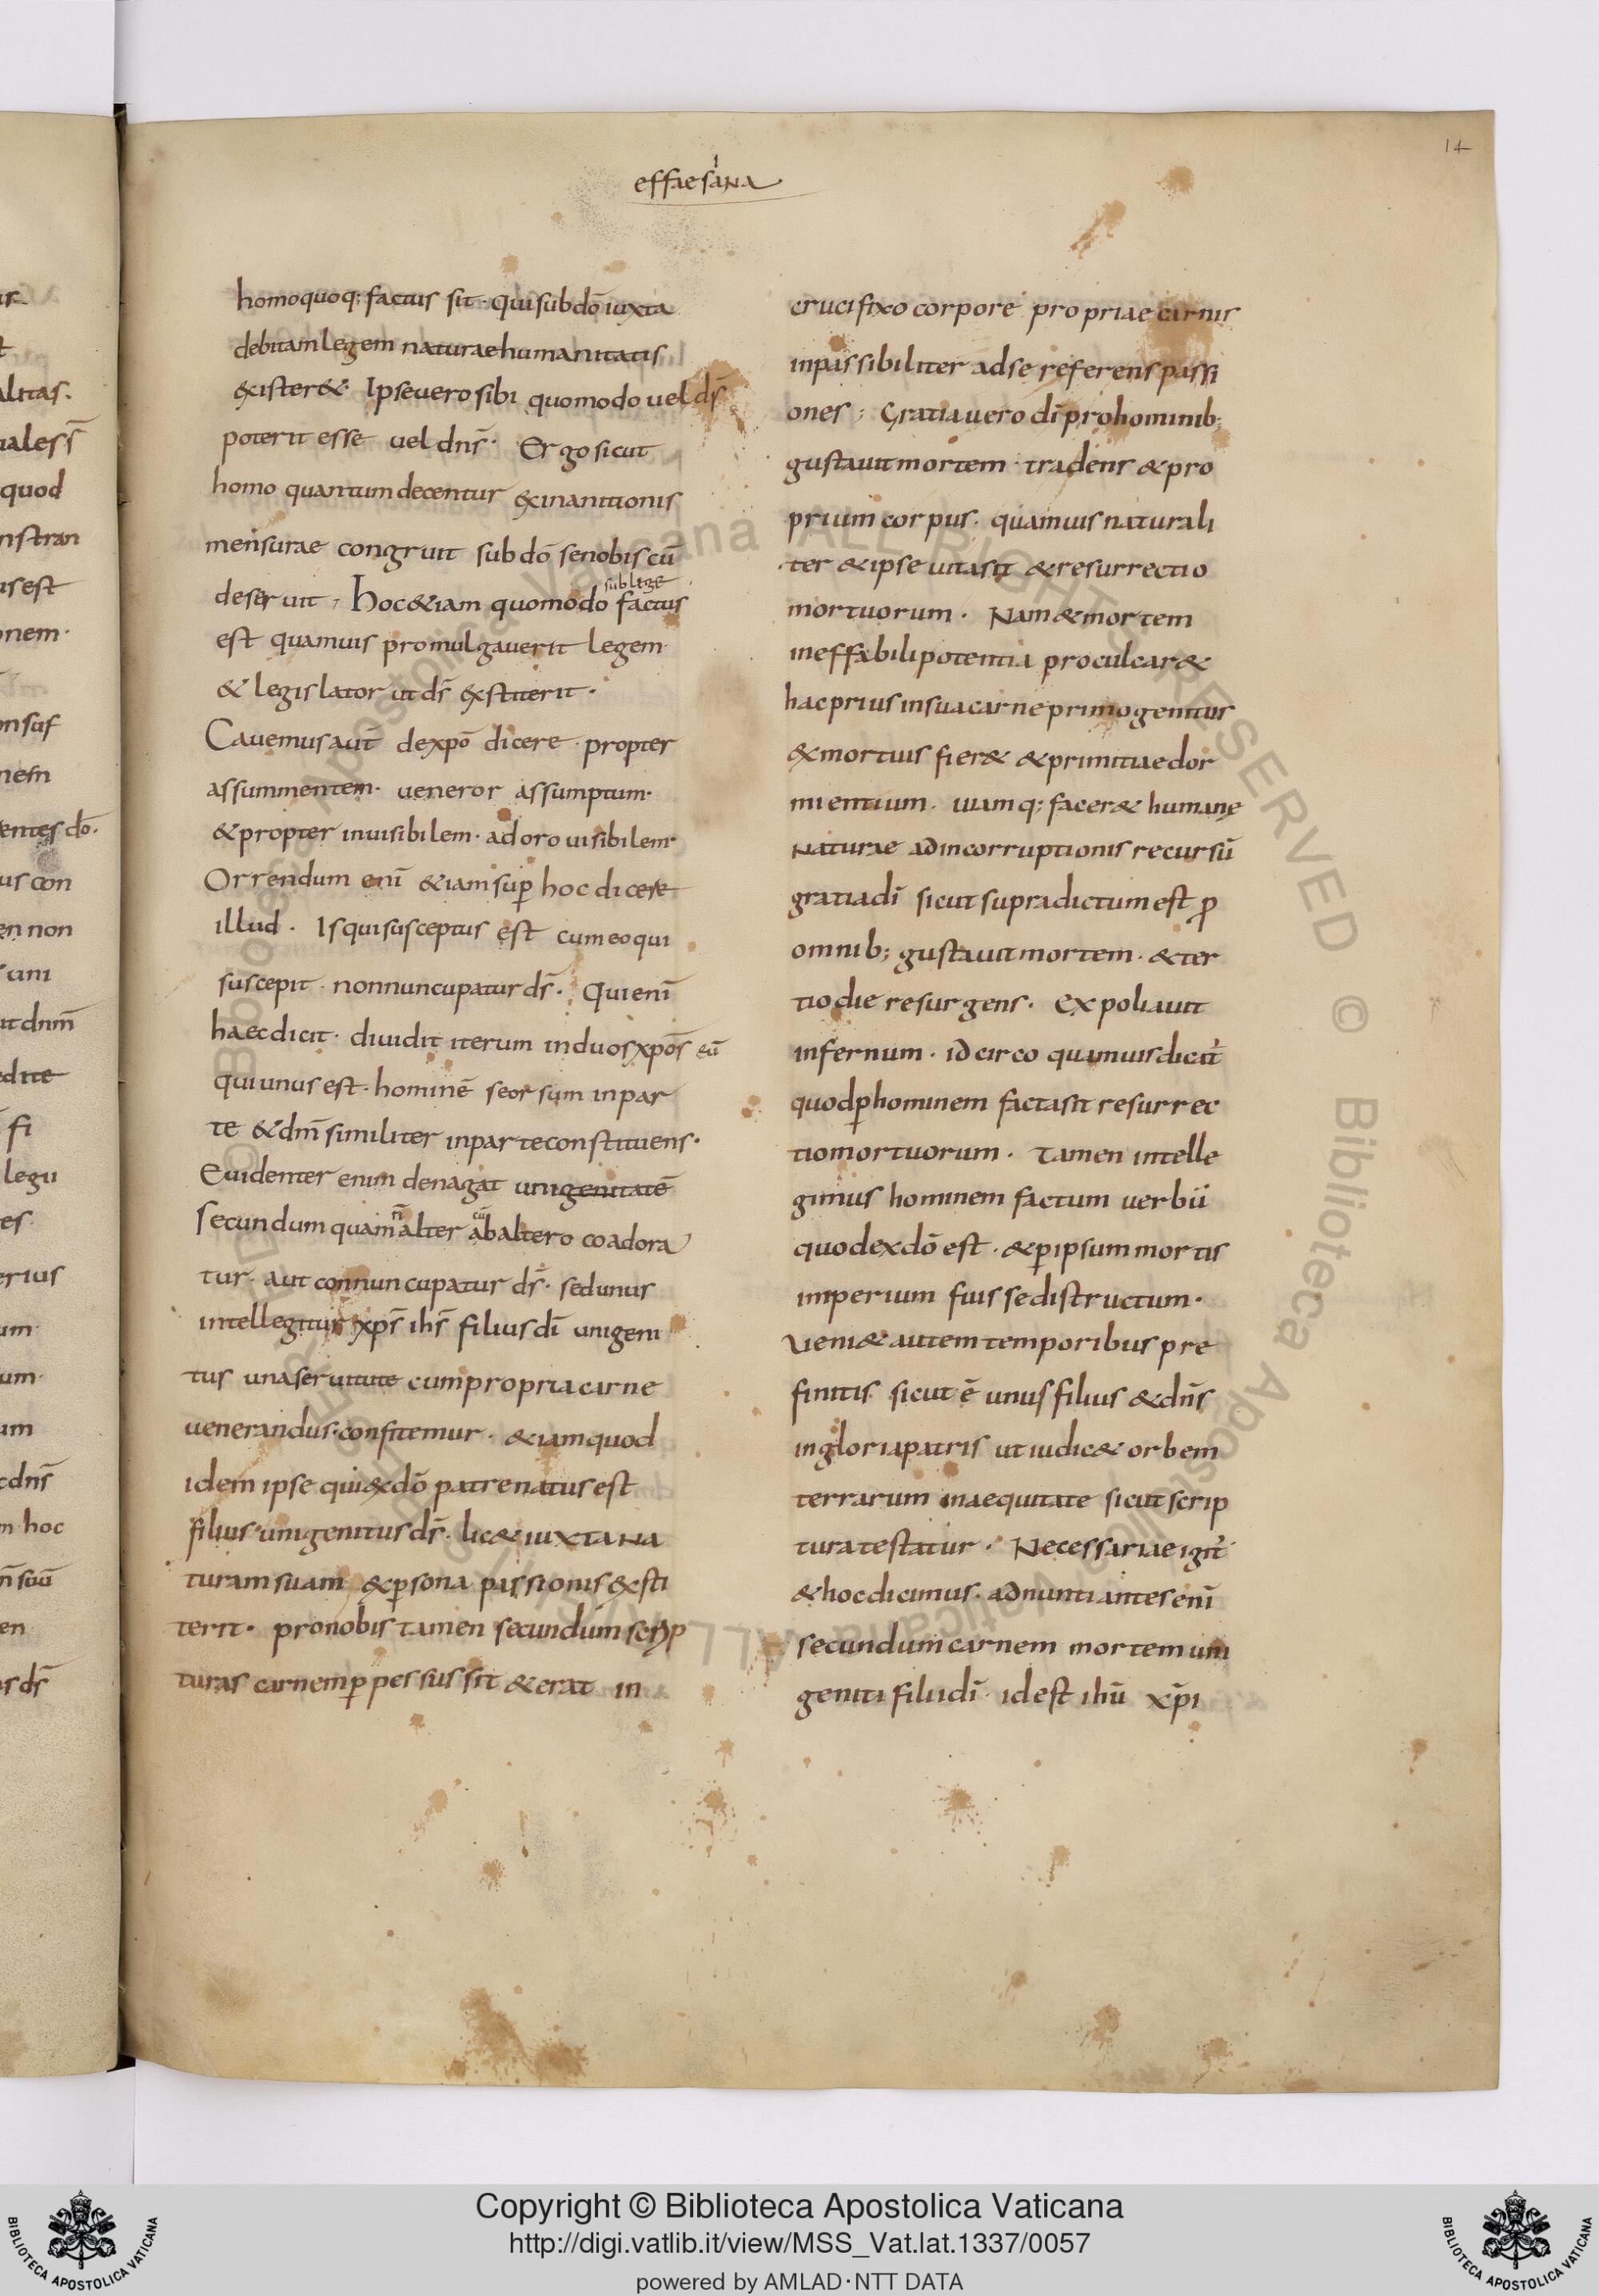 14
effaesiana
homoquoq; factus sit · quisubdō iuxta
debitamlegem naturaehumanitatis
existeret Ipseverosibi quomodo vel ds̄
poterit esse vel dns̄ · Ergo sicut
homo quantum decentur exinanitionis
mensurae congruit sub dō se nobis cū
deseruit, hoc etiam quomodo sublege factus
est quamuis promulgauerit legem
& legislator ut ds̄ extiterit ·
Cauemus aūt dexpō dicere · propter
assummentem · ueneror assumptum ·
& propter inuisibilem · adoro uisibilem ·
Orrendum enī & iam sup hoc dicere
illud · Isqui susceptus est cum eo qui
suscepit · non nuncupatur ds̄ · Qui enī
haec dicit · diuidit iterum induos xpōs eū
qui unus est · hominē seorsum inpar
te & dm̄ similiter inparte constituens ·
Euidenter enim denagat unigenitatē
Secundum quam n̄ alter cū abaltero coadora
tur · aut connuncupatur ds̄ · sed unus
intellegitur xps̄ ihs̄ filius dī unigeni
tus una seruitute cum propria carne
uenerandus · confitemur · & iam quod
idem ipse qui ex dō patre natus est
filius unigenitus ds̄ · licet iuxta na
turam suam expsona passionis exsti
terit · pro nobis tamen secundum scrip
turas carnem ppessus sit & erat in
crucifixo corpore propriae carnis
inpassibiliter ad se referens passi
ones ; Gratia vero dī pro hominib;
gustauit mortem · tradens & pro
prium corpus · quamuis naturali
ter & ipse uita sit & resurrectio
mortuorum · Nam & mortem
ineffabili potentia proculcaret
hac prius in sua carne primogenitus
& mortuis fieret & primitiae dor
mientium · uiamq; faceret humanę
naturae ad incorruptionis recursū
gratia dī sicut supradictum est p
omnib; gustauit mortem · & ter
tio die resurgens · expoliauit
infernum · id circo quamuis dicat̄
quod p hominem facta sit resurrec
tio mortuorum · Tamen intelle
gimus hominem factum verbū
quod ex dō est · & p ipsum mortis
imperium fuisse distructum ·
Veniet autem temporibus pre
finitis sicut ē unus filius & dns̄
in gloria patris ut iudicet orbem
terrarum in aequitate sicut scrip
tura testatur · Necessariae igit̄
& hoc dicimus · adnuntiantes enī
secundum carnem mortem uni
geniti filii dī · id est ihū xp̄i
Copyright © Biblioteca Apostolica Vaticana
http://digi.vatlib.it/view/MSS_Vat.lat.1337/0057
powered by AMLAD·NTT DATA